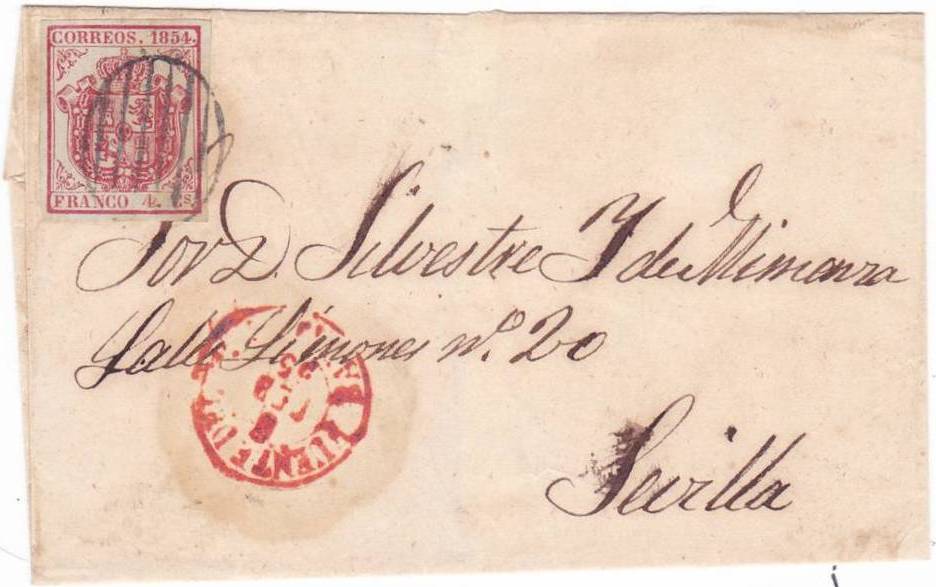 CORREOS. 1854.
FRANCO 4. Cs.
Sor D. Silvestre Y de Mimenza
Calle Limones nº. 20
FUENTE
Sevilla